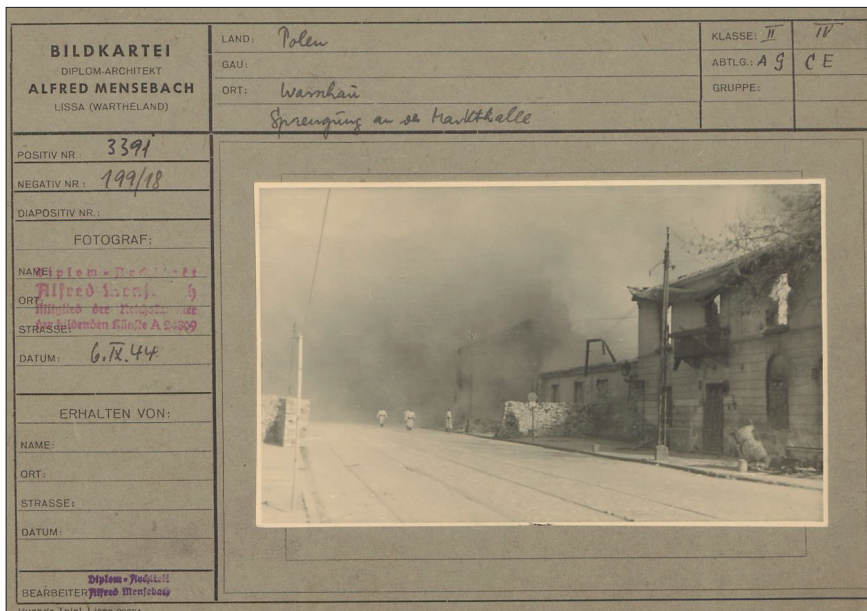 BILDKARTEI
DIPLOM-ARCHITEKT
ALFRED MENSEBACH
LISSA (WARTHELAND)
LAND: Polen
GAU:
ORT: Warschau
Sprengung an der Markthalle
KLASSE: II IV
ABTLG.: A G C E
GRUPPE:
POSITIV NR.: 3391
NEGATIV NR.: 199/18
DIAPOSITIV NR.:
FOTOGRAF:
NAME:
ORT:
STRASSE:
Diplom-Architekt
Alfred Mensebach
Mitglied der Reichskammer
der bildenden Künste A 24809
DATUM: 6.IX.44
ERHALTEN VON:
NAME:
ORT:
STRASSE:
DATUM:
BEARBEITER:
Diplom-Architekt
Alfred Mensebach